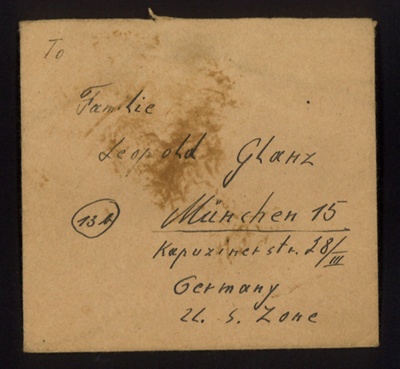 To
Familie
Leopold Glanz
13b
München 15
Kapuzinerstr. 28/III
Germany
U. S. Zone